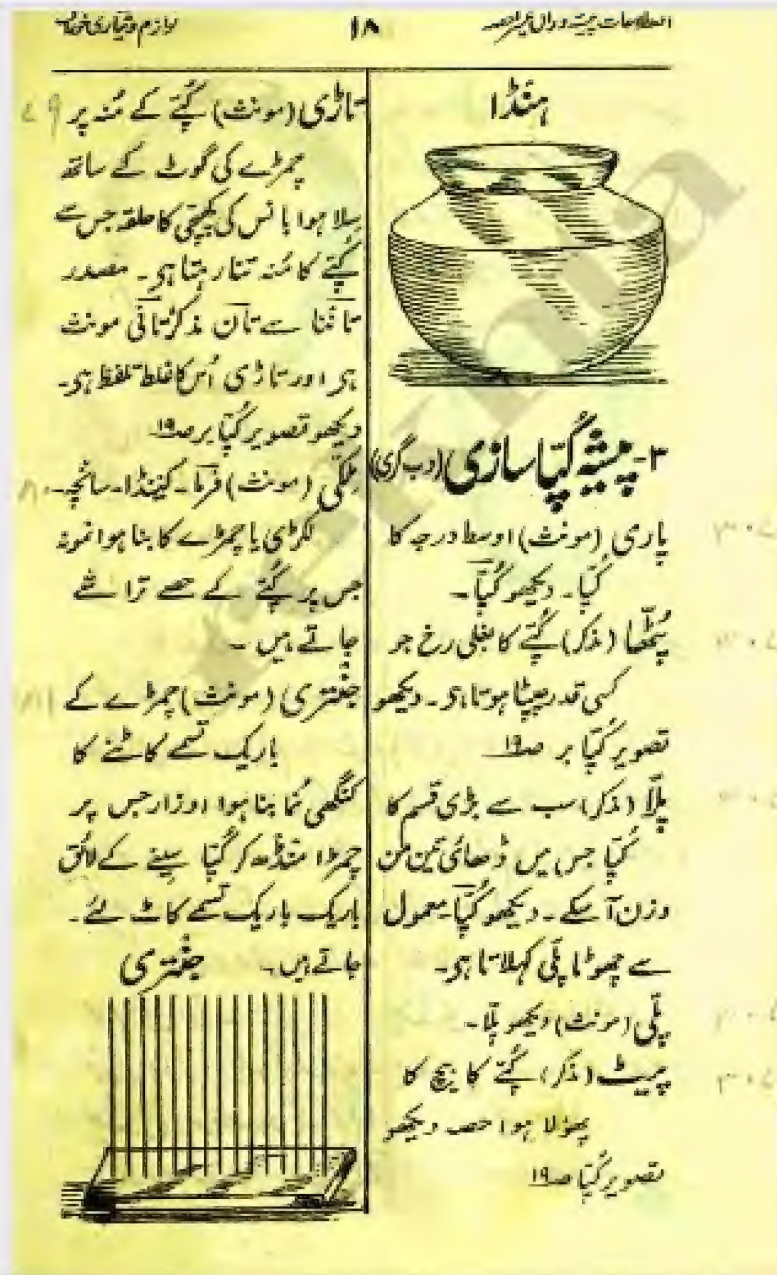 اصطلاحات پیشہ وراں
۱۸
لوازم و تیاری خوراک
ہنڈا
۳- پیشۂ کُپّا سازی (دب گری)
پاری (مونث) اوسط درجہ کا
کُپّا۔ دیکھو کُپّا۔
پُٹھّا (مذکر) کُپّے کا بغلی رخ جو
کسی قدر چپٹا ہوتا ہو۔ دیکھو
تصویر کُپّا بر صہ۱۹
پلّا (مذکر) سب سے بڑی قسم کا
کُپّا جس میں ڈھائی تین من
وزن آسکے۔ دیکھو کُپّا۔ معمول
سے چھوٹا پلّی کہلاتا ہو۔
پلّی (مونث) دیکھو پلّا۔
پیٹ (مذکر) کُپّے کا بیچ کا
پھولا ہوا حصہ دیکھو
تصویر کُپّا صہ۱۹
تاڑی (مونث) کُپّے کے مُنہ پر
چمڑے کی گوٹ کے ساتھ
سِلا ہوا بانس کی کھپچی کا حلقہ جس سے
کُپّے کا مُنہ تنا رہتا ہو۔ مصدر
تاننا سے تان مذکر تانی مونث
ہو اور تاڑی اُس کا غلط تلفظ ہو۔
دیکھو تصویر کُپّا بر صہ۱۹
(مونث) فرما۔ کینڈا۔ سانچہ۔
لکڑی یا چمڑے کا بنا ہوا نمونہ
جس پر کُپّے کے حصے تراشے
جاتے ہیں۔
جنتری (مونث) چمڑے کے
باریک تسمے کاٹنے کا
کنگھی نُما بنا ہوا اوزار جس پر
چمڑا منڈھ کر کُپّا سینے کے لائق
باریک باریک تسمے کاٹ لئے
جاتے ہیں۔
جنتری